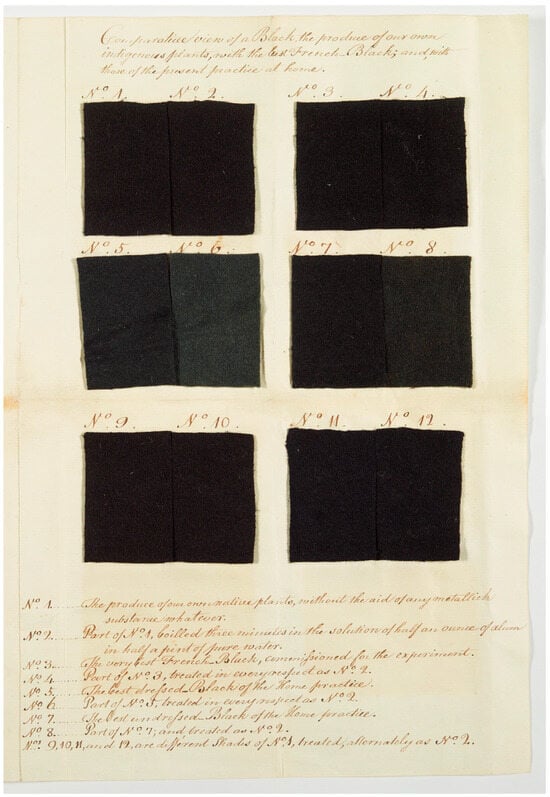 Comparative view of a Black, the produce of our own
indigenous plants, with the best French Black; and with
those of the present practice at home.
No 1. No 2. No 3. No 4.
No 5. No 6. No 7. No 8.
No 9. No 10. No 11. No 12.
No 1. The produce of our own native plants, without the aid of any metallick
substance whatever.
No 2. Part of No 1, boilled three minutes in the solution of half an ounce of alum
in half a pint of pure water.
No 3. The very best French Black, commissioned for the experiment.
No 4. Part of No 3, treated in every respect as No 2.
No 5. The best dressed Black of the Home practice.
No 6. Part of No 5, treated in every respect as No 2.
No 7. The best undressed Black of the Home practice.
No 8. Part of No 7, and treated as No 2.
No. 9, 10, 11, and 12, are different Shades of No 1, treated, alternately as No 2.